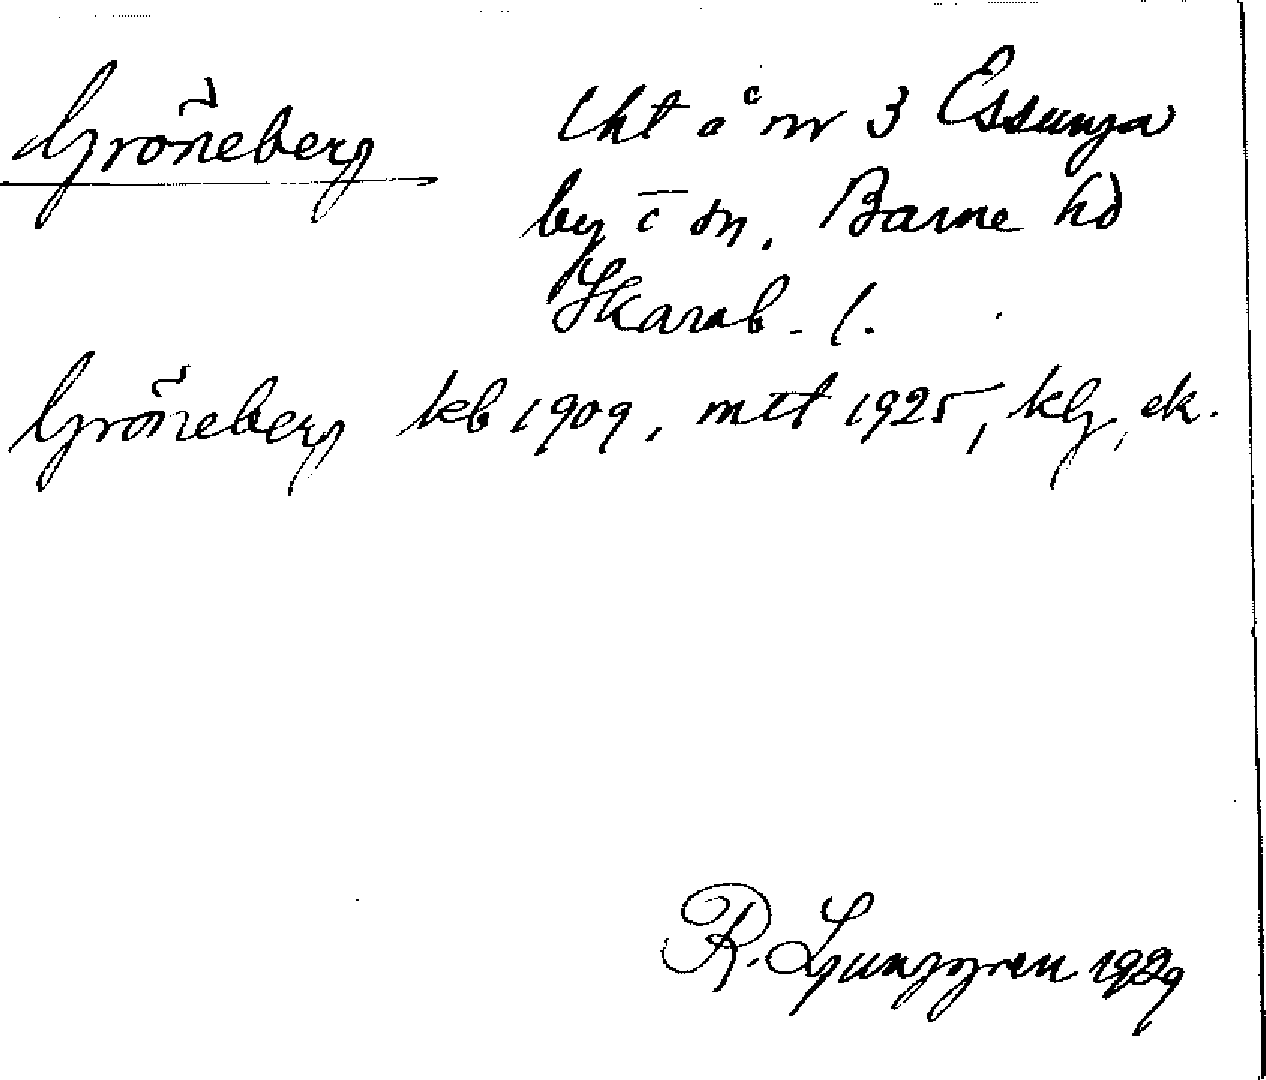 Gröneberg lht å nr 3 Essunga
by o sn. Barne hd
Skarab. l.
Gröneberg kb 1909, mtl 1925, klg, ek.
R. Ljunggren 1929